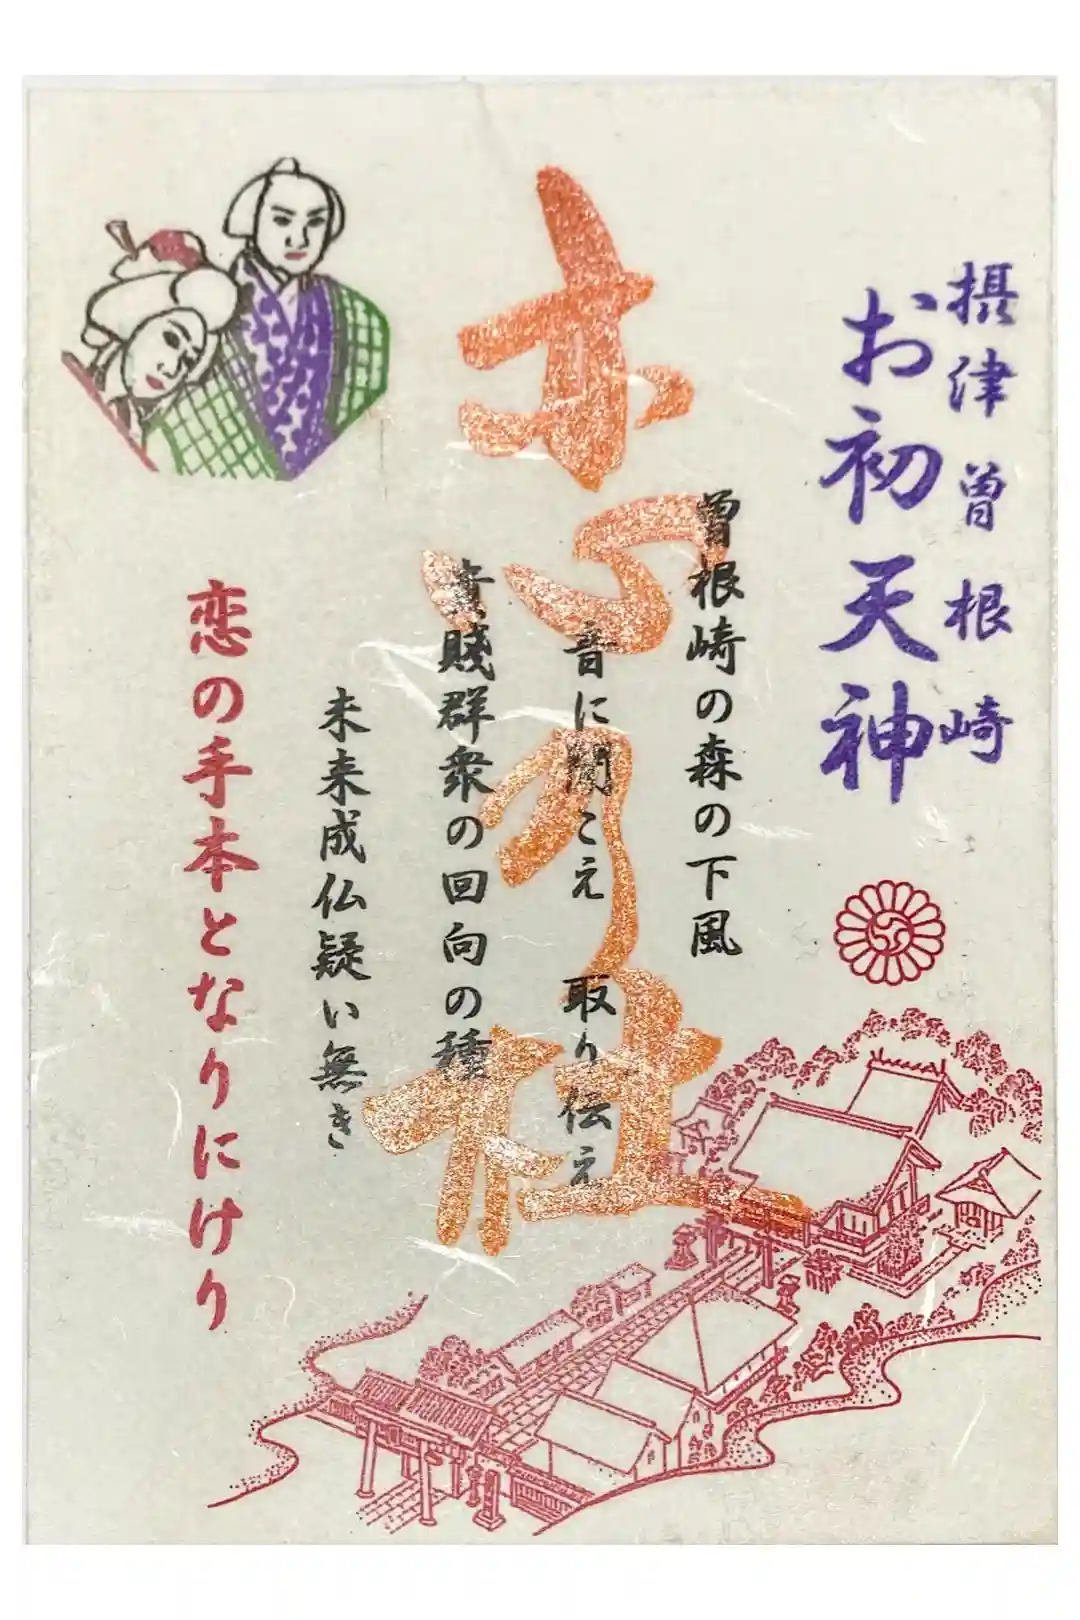 摂津 曽根崎
お初天神
曽根崎の森の下風
音に聞こえ 取り伝え
貴賤群衆の回向の種
未来成仏疑い無き
恋の手本となりにけり
恋乃社